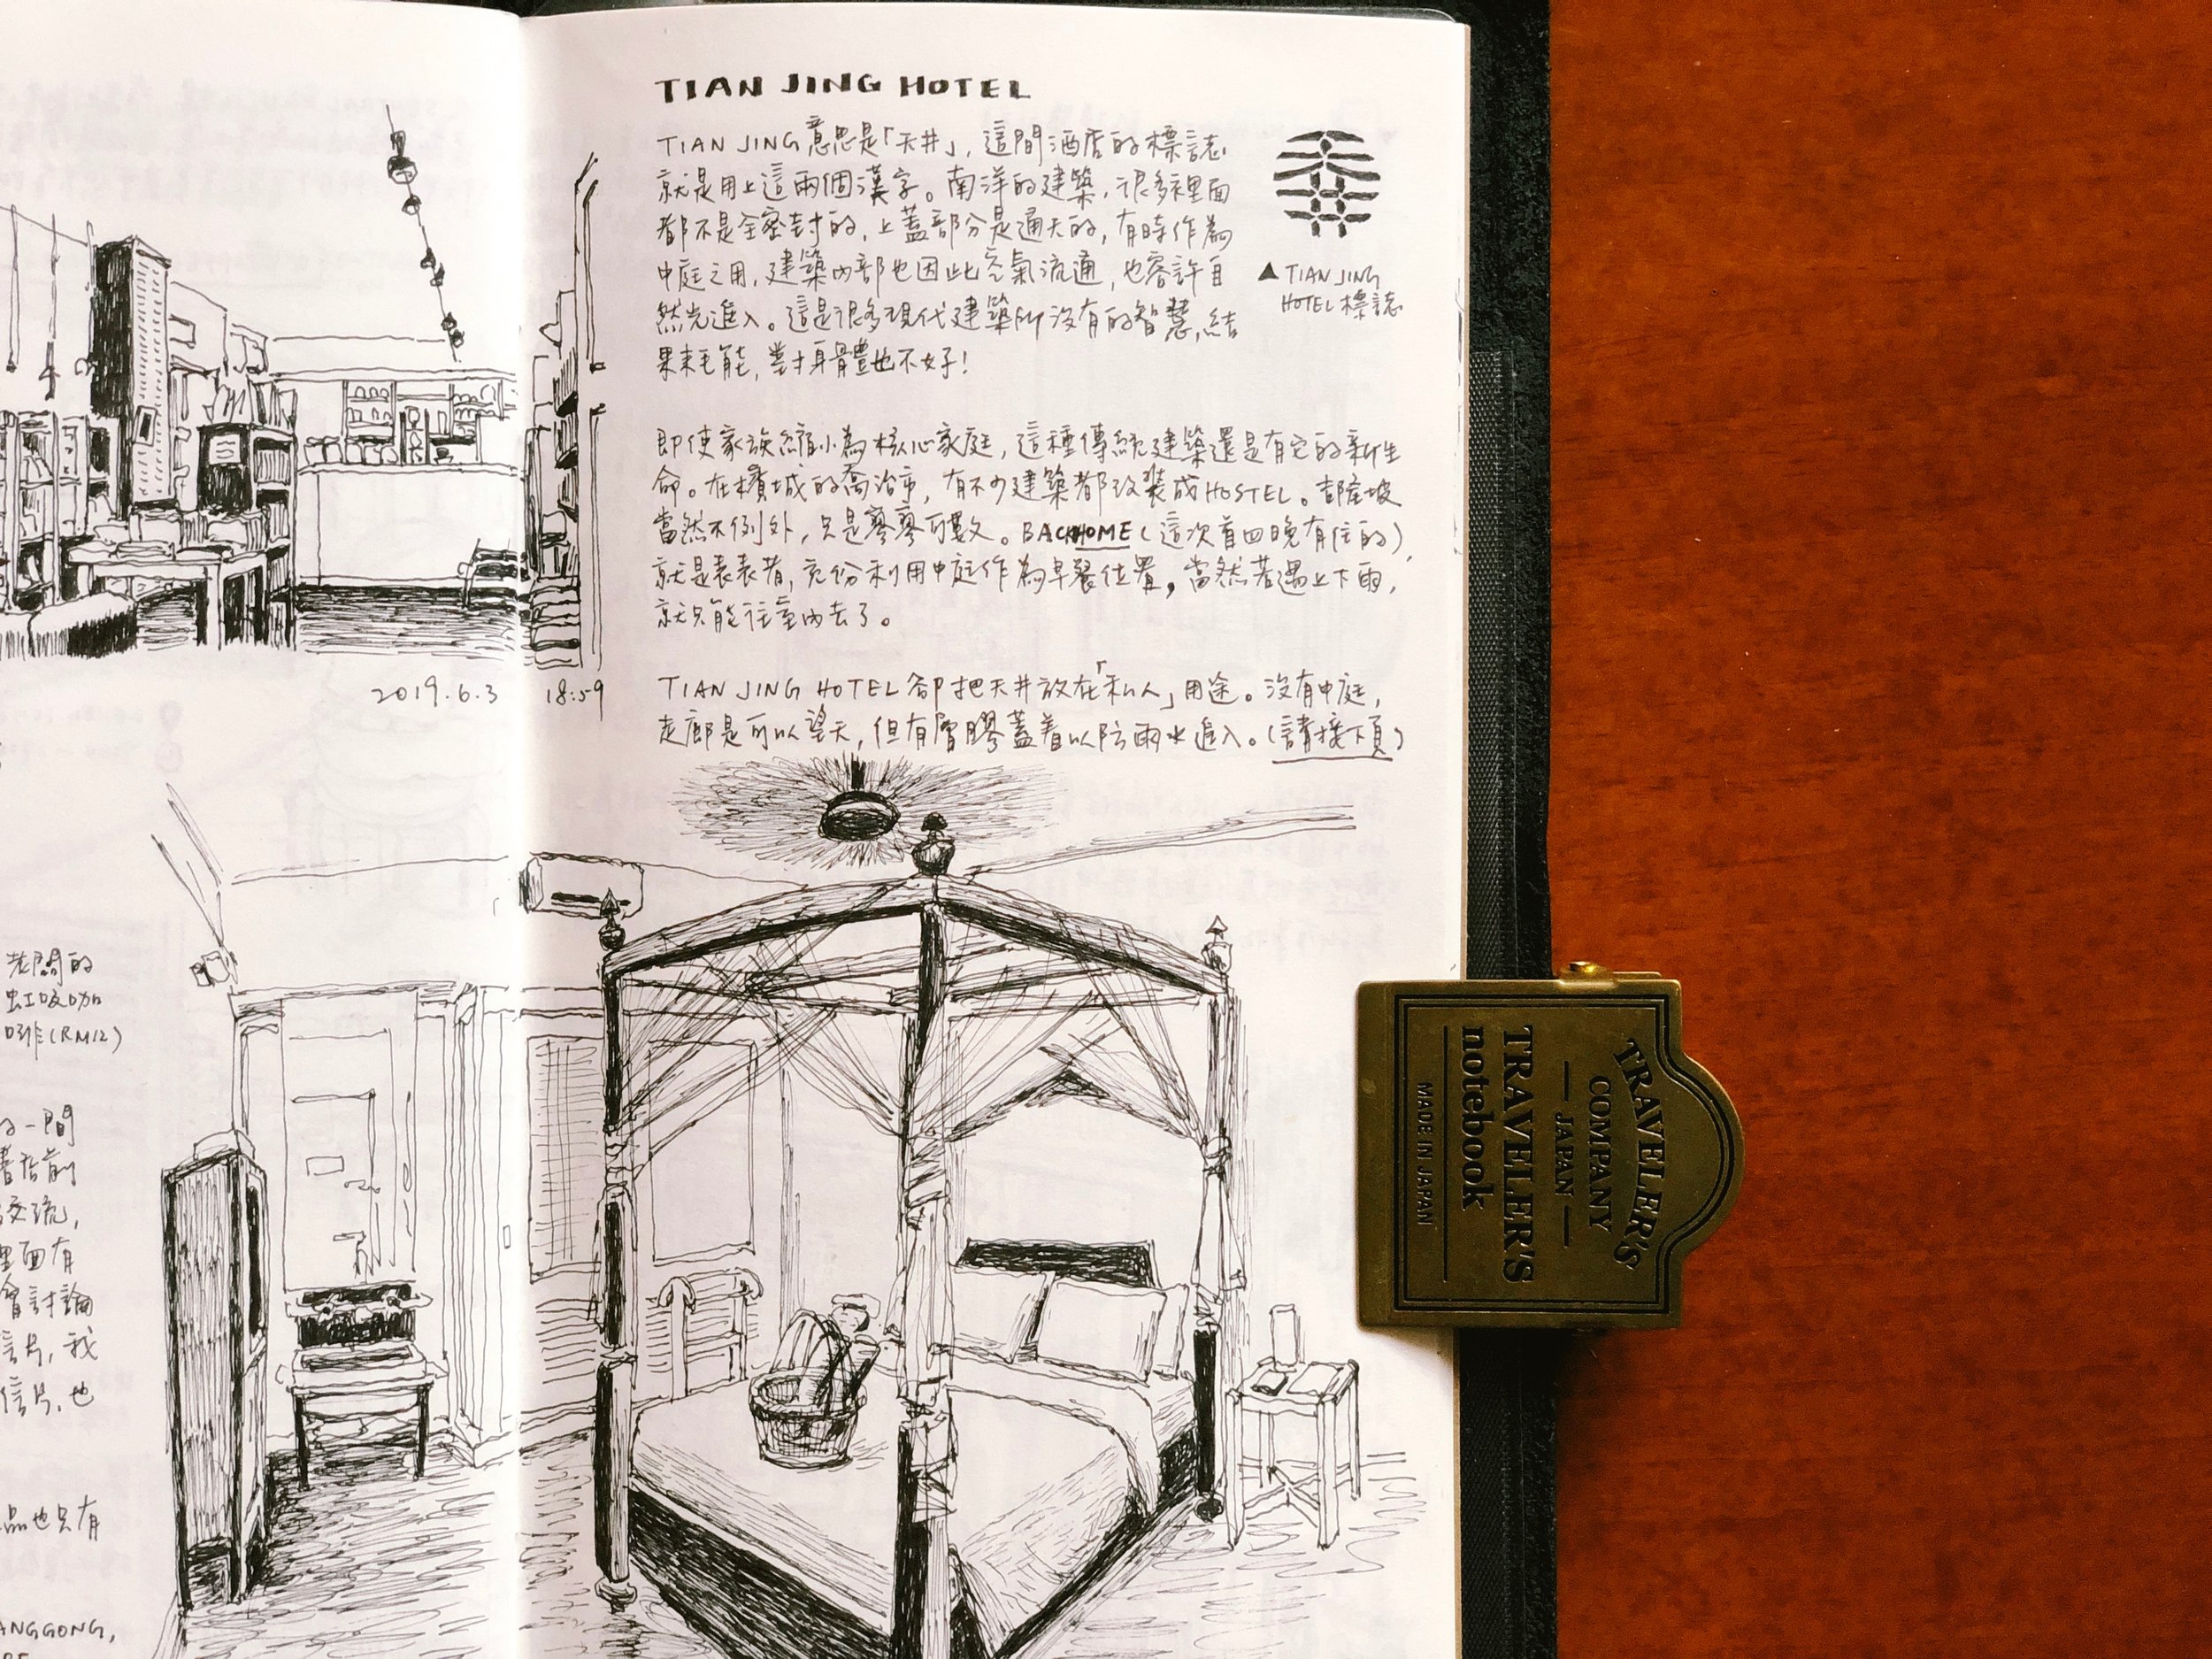 TIAN JING HOTEL
TIAN JING 意思是「天井」, 這間酒店的標誌
就是用上這兩個漢字。南洋的建築, 很多裡面
都不是全密封的, 上蓋部分是通天的, 有時作為
中庭之用, 建築內部也因此空氣流通, 也容許自
然光進入。這是很多現代建築所沒有的智慧, 結
果耗能, 對身體也不好!
天井
▲ TIAN JING
HOTEL 標誌
即使家族縮小為核心家庭, 這種傳統建築還是有它的新生
命。在檳城的喬治市, 有不少建築都改裝成HOSTEL。吉隆坡
當然不例外, 只是寥寥可數。BACKHOME (這次首四晚有住的)
就是表表者, 充份利用中庭作為早餐位置, 當然若遇上下雨,
就只能往室內去了。
TIAN JING HOTEL 卻把天井放在「私人」用途。沒有中庭,
走廊是可以望天, 但有層膠蓋着以防雨水進入。(請接下頁)
2019.6.3 18:59
老闆的
虹吸咖
啡 (RM12)
的一間
書店前
交流,
裡面有
會討論
信片, 我
信片, 也
品也只有
ANGGONG,
TRAVELER'S
COMPANY
— JAPAN —
TRAVELER'S
notebook
MADE IN JAPAN